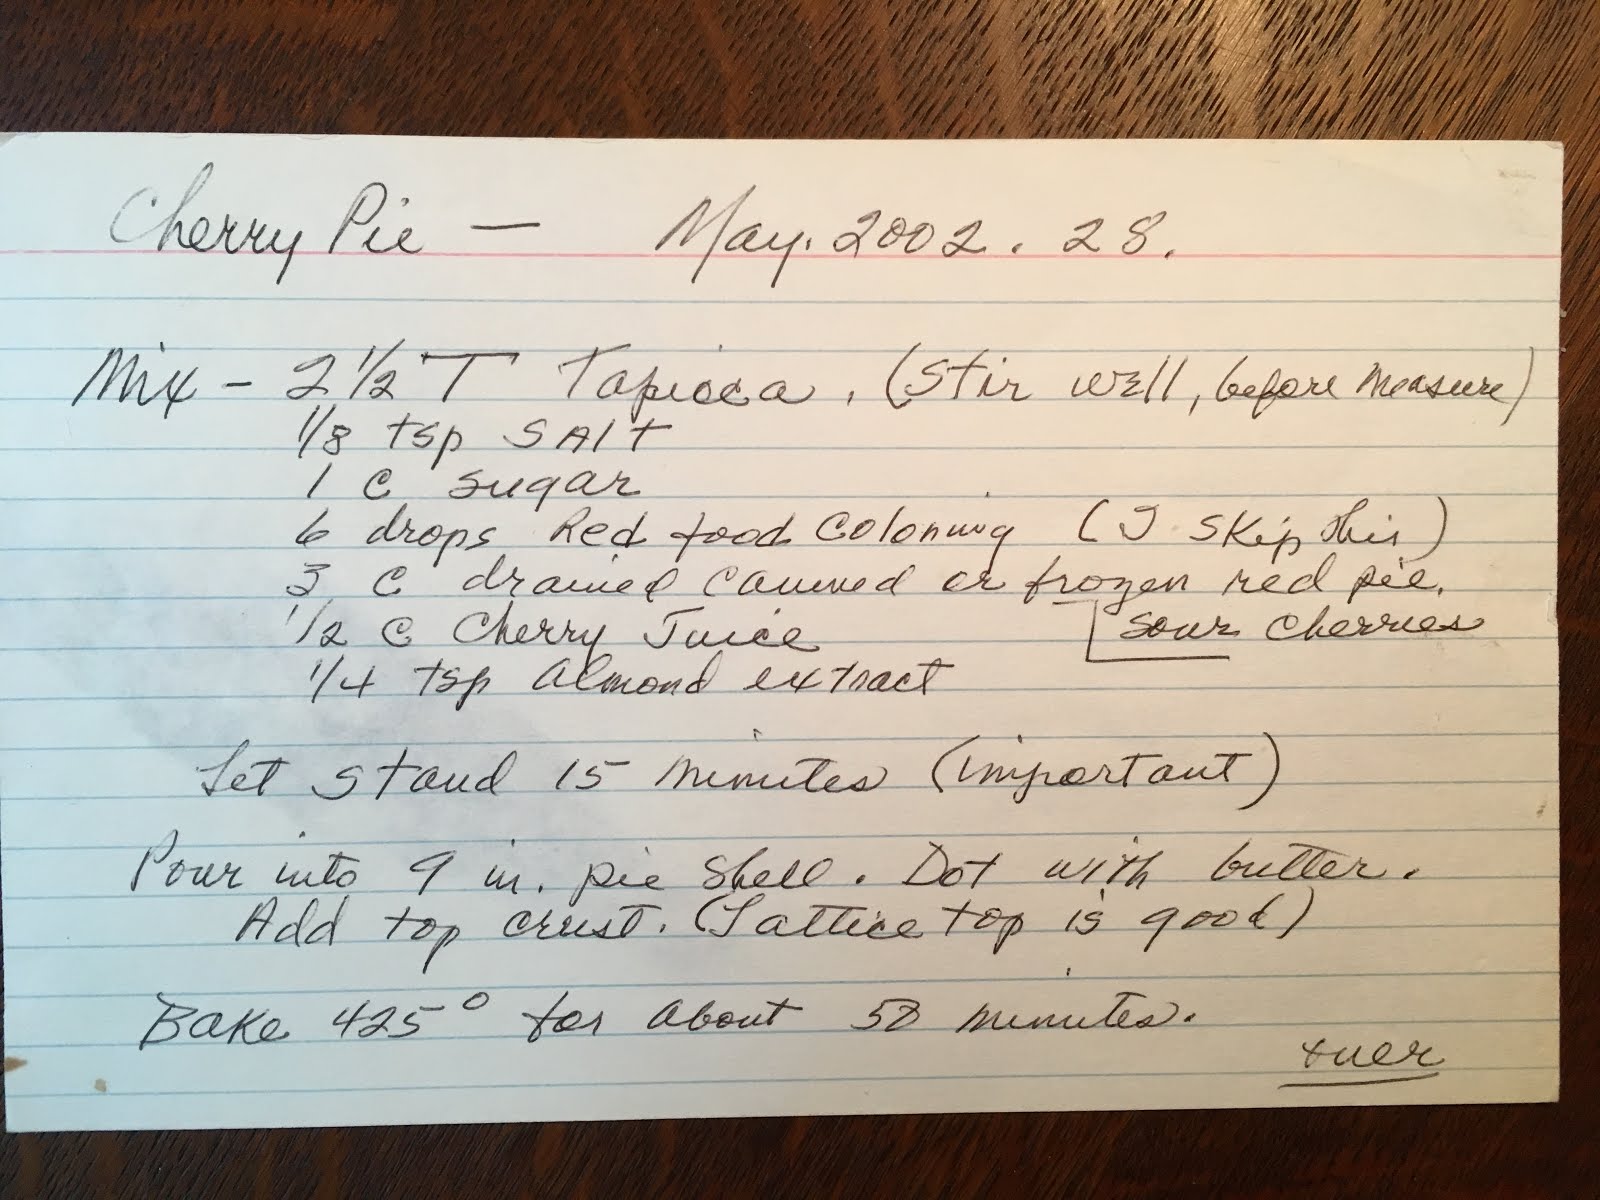 Cherry Pie — May. 2002. 28.
Mix - 2 1/2 T Tapioca. (Stir well, before measure)
1/8 tsp SAlt
1 c sugar
6 drops Red food Coloring (I skip this)
3 c drained canned or frozen red pie.
1/2 c Cherry Juice sour cherries
1/4 tsp Almond extract
Let stand 15 minutes (important)
Pour into 9 in. pie shell. Dot with butter.
Add top crust. (Lattice top is good)
Bake 425° for about 50 minutes.